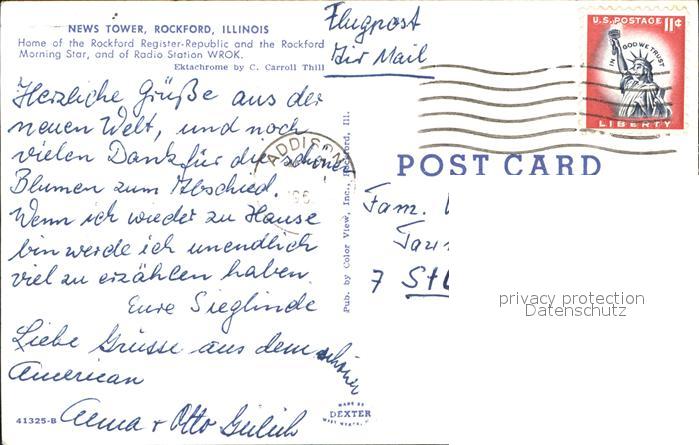 NEWS TOWER, ROCKFORD, ILLINOIS
Home of the Rockford Register-Republic and the Rockford
Morning Star, and of Radio Station WROK.
Ektachrome by C. Carroll Thill
Flugpost
Air Mail
U.S. POSTAGE 11¢
IN GOD WE TRUST
LIBERTY
Herzliche Grüße aus der
neuen Welt, und noch
vielen Dank für die schönen
Blumen zum Abschied.
Wenn ich wieder zu Hause
bin werde ich unendlich
viel zu erzählen haben.
Eure Sieglinde
Liebe Grüsse aus dem schönen
American
Anna + Otto
ADDISON
Pub. by Color View, Inc., Rockford, Ill.
POST CARD
Fam.
7
privacy protection
Datenschutz
41325-B
MADE BY
DEXTER